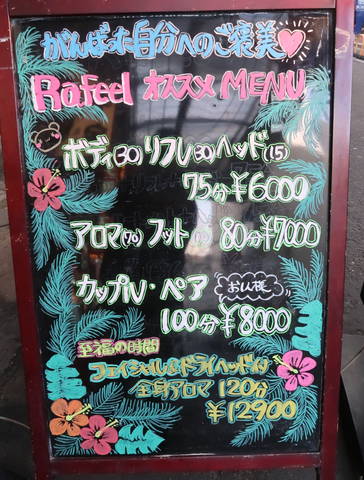 がんばった自分へのご褒美♡
Rafeel オススメ MENU
ボディ(30) リフレ(30) ヘッド(15)
75分 ¥6000
アロマ(70) フット
80分 ¥7000
カップル・ペア
お1人様
100分 ¥8000
至福の時間
フェイシャル&ドライヘッド付
全身アロマ 120分
¥12900